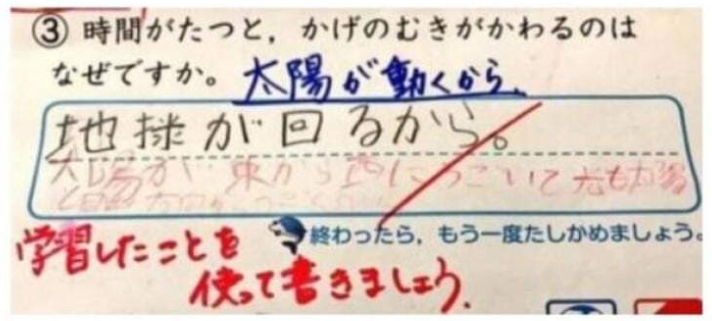 ③ 時間がたつと，かげのむきがかわるのは
なぜですか。
太陽が動くから、
地球が回るから。
太陽が 東から西にうごいて
終わったら，もう一度たしかめましょう。
学習したことを
使って書きましょう。